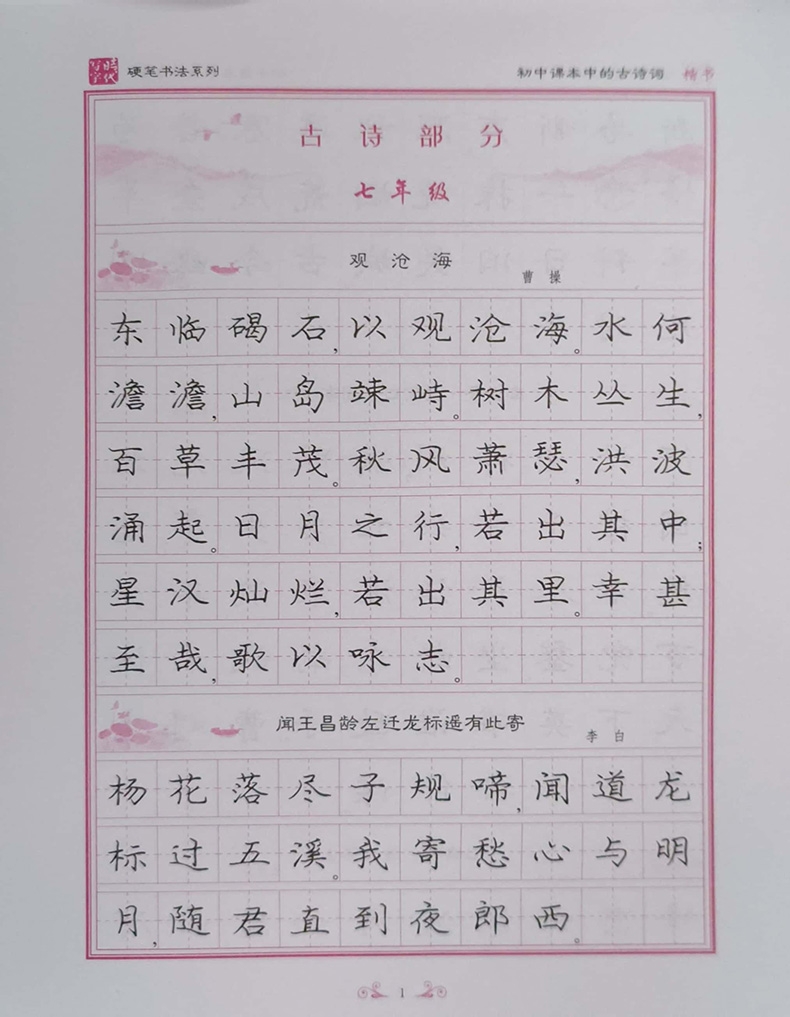 时代写字 硬笔书法系列 初中课本中的古诗词 楷书
古诗部分
七年级
观沧海 曹操
东临碣石,以观沧海。水何
澹澹,山岛竦峙。树木丛生,
百草丰茂。秋风萧瑟,洪波
涌起。日月之行,若出其中;
星汉灿烂,若出其里。幸甚
至哉,歌以咏志。
闻王昌龄左迁龙标遥有此寄 李白
杨花落尽子规啼,闻道龙
标过五溪。我寄愁心与明
月,随君直到夜郎西。
1